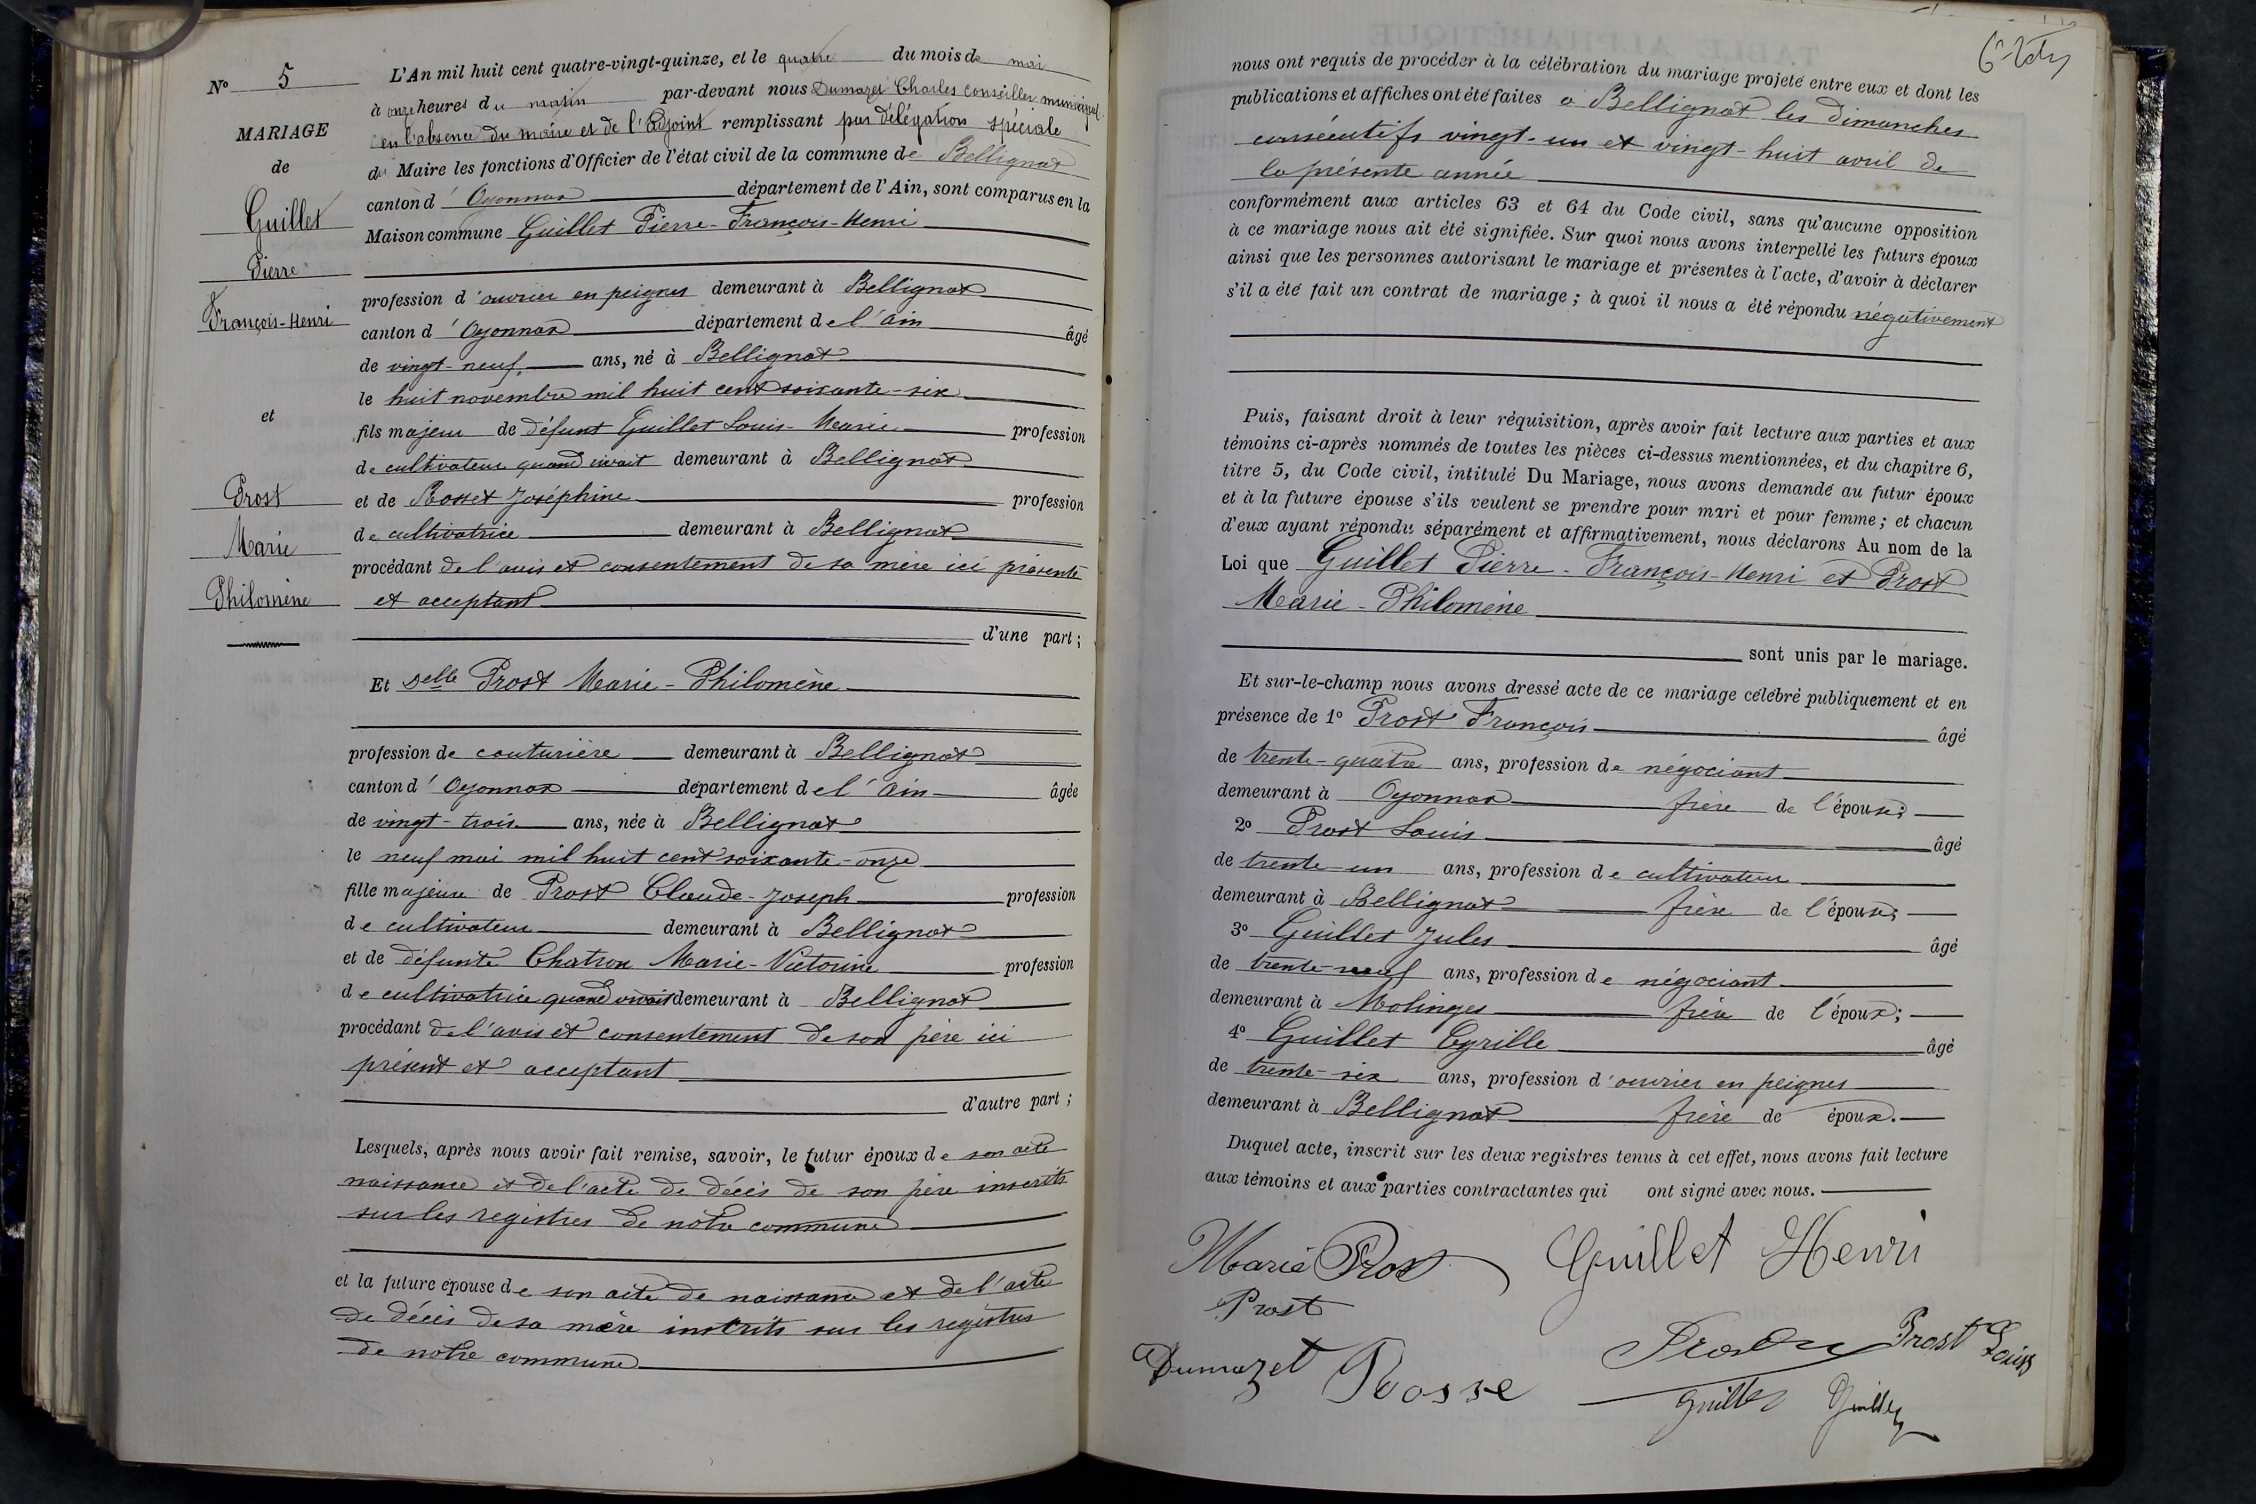 N° 5
MARIAGE
de
Guillet
Pierre
François-Henri
et
Prost
Marie
Philomène
L'An mil huit cent quatre-vingt-quinze, et le quatre du mois de mai
à onze heures du matin par-devant nous Dumazet Charles conseiller municipal
en l'absence du maire et de l'adjoint remplissant par délégation spéciale
du Maire les fonctions d'Officier de l'état civil de la commune de Bellignat
canton d'Oyonnax département de l'Ain, sont comparus en la
Maison commune Guillet Pierre-François-Henri
profession d'ouvrier en peignes demeurant à Bellignat
canton d'Oyonnax département de l'Ain âgé
de vingt-neuf ans, né à Bellignat
le huit novembre mil huit cent soixante-six
fils majeur de défunt Guillet Louis-Marie profession
de cultivateur quand vivait demeurant à Bellignat
et de Rosset Joséphine profession
de cultivatrice demeurant à Bellignat
procédant de l'avis et consentement de sa mère ici présente
et acceptant
d'une part;
Et Delle Prost Marie-Philomène
profession de couturière demeurant à Bellignat
canton d'Oyonnax département de l'Ain âgée
de vingt-trois ans, née à Bellignat
le neuf mai mil huit cent soixante-onze
fille majeure de Prost Claude-Joseph profession
de cultivateur demeurant à Bellignat
et de défunte Chatron Marie-Victorine profession
de cultivatrice quand vivait demeurant à Bellignat
procédant de l'avis et consentement de son père ici
présent et acceptant
d'autre part;
Lesquels, après nous avoir fait remise, savoir, le futur époux de son acte
naissance et de l'acte de décès de son père inscrits
sur les registres de notre commune
et la future épouse de son acte de naissance et de l'acte
de décès de sa mère inscrits sur les registres
de notre commune
nous ont requis de procéder à la célébration du mariage projeté entre eux et dont les
publications et affiches ont été faites à Bellignat les dimanches
consécutifs vingt-un et vingt-huit avril de
la présente année
conformément aux articles 63 et 64 du Code civil, sans qu'aucune opposition
à ce mariage nous ait été signifiée. Sur quoi nous avons interpellé les futurs époux
ainsi que les personnes autorisant le mariage et présentes à l'acte, d'avoir à déclarer
s'il a été fait un contrat de mariage; à quoi il nous a été répondu négativement
Puis, faisant droit à leur réquisition, après avoir fait lecture aux parties et aux
témoins ci-après nommés de toutes les pièces ci-dessus mentionnées, et du chapitre 6,
titre 5, du Code civil, intitulé Du Mariage, nous avons demandé au futur époux
et à la future épouse s'ils veulent se prendre pour mari et pour femme; et chacun
d'eux ayant répondu séparément et affirmativement, nous déclarons Au nom de la
Loi que Guillet Pierre-François-Henri et Prost
Marie-Philomène
sont unis par le mariage.
Et sur-le-champ nous avons dressé acte de ce mariage célébré publiquement et en
présence de 1° Prost François âgé
de trente-quatre ans, profession de négociant
demeurant à Oyonnax frère de l'épouse;
2° Prost Louis âgé
de trente-un ans, profession de cultivateur
demeurant à Bellignat frère de l'épouse;
3° Guillet Jules âgé
de trente-neuf ans, profession de négociant
demeurant à Molinges frère de l'époux;
4° Guillet Cyrille âgé
de trente-six ans, profession d'ouvrier en peignes
demeurant à Bellignat frère de époux.
Duquel acte, inscrit sur les deux registres tenus à cet effet, nous avons fait lecture
aux témoins et aux parties contractantes qui ont signé avec nous.
Marie Prost Guillet Henri
Prost
Dumazet Rosset Prost Prost Louis
Guillet Guillet